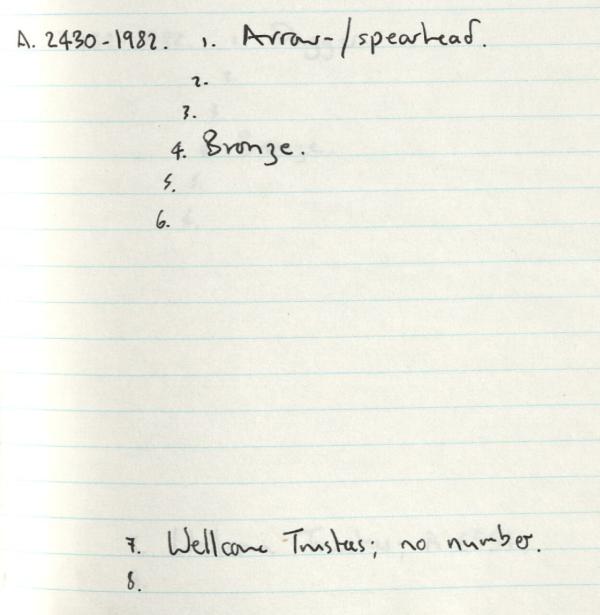 A. 2430-1982. 1. Arrow-/spearhead.
2.
3.
4. Bronze.
5.
6.
7. Wellcome Trustees; no number.
8.